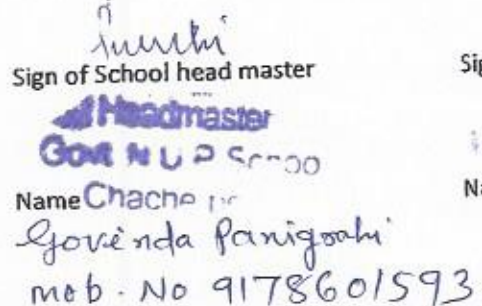 Sign of School head master Sig
Headmaster
Govt N U P Schoo
Name Chache Na
Govinda Panigrahi
mob. No 9178601593